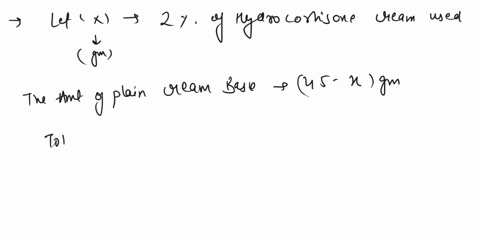 → Let (x) → 2 %. of Hydrocortisone cream used
↓
(gm)
The amt of plain cream Base → (45 - x) gm
Tot